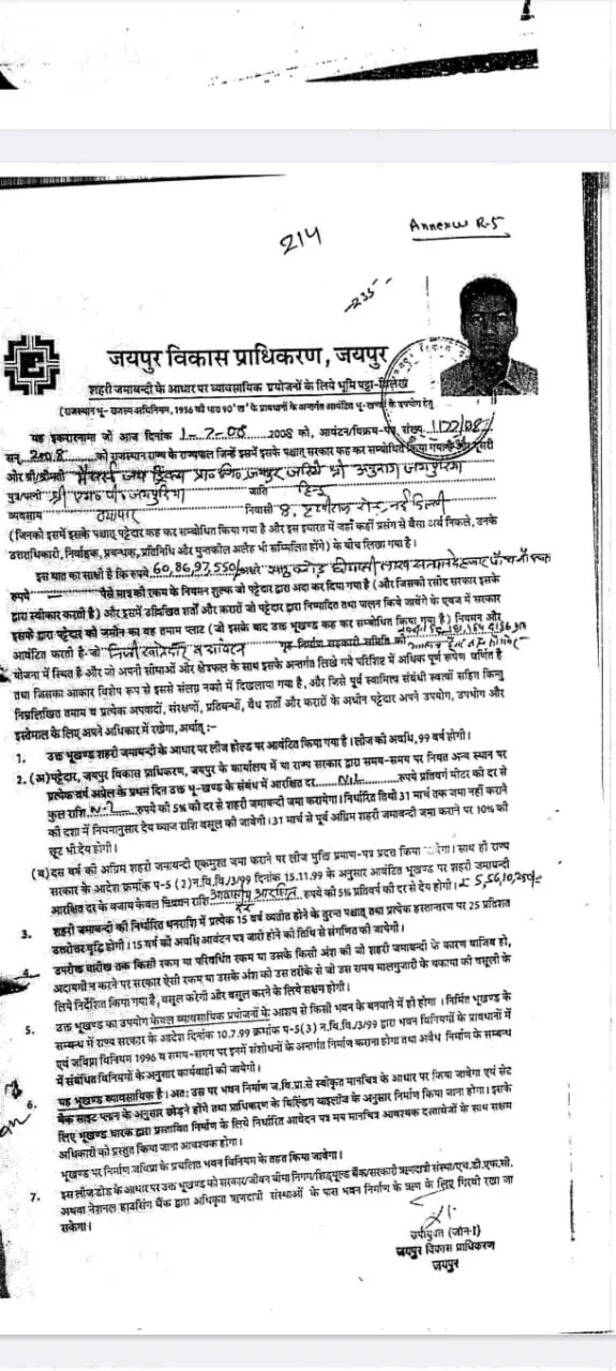 Annexu R-5
214
235
जयपुर विकास प्राधिकरण, जयपुर
शहरी जमाबन्दी के आधार पर व्यावसायिक प्रयोजनों के लिये भूमि पट्टा-विलेख
(राजस्थान भू-राजस्व अधिनियम, 1956 की धारा 90 'ख' के प्रावधानों के अन्तर्गत आवंटित भू-खण्डों के उपयोग हेतु
यह इकरारनामा जो आज दिनांक 1-7-08 2008 को, आवंटन/विक्रय-पत्र संख्या 1122/08
सन् 2008 को राजस्थान राज्य के राज्यपाल जिन्हें इसमें इसके पश्चात् सरकार कह कर सम्बोधित किया गया है और दूसरी
और श्री/श्रीमती मैसर्स जय ड्रिंक्स प्रा० लि० जयपुर जरिये श्री अनुराग जयपुरिया
पुत्र/पत्नी श्री एम० पी० जयपुरिया जाति हिन्दू
व्यवसाय व्यापार निवासी 8, पृथ्वीराज रोड, नई दिल्ली
(जिनको इसमें इसके पश्चात् पट्टेदार कह कर सम्बोधित किया गया है और इस इबारत में जहाँ कहीं प्रसंग से वैसा अर्थ निकले, उनके
उत्तराधिकारी, निर्वाहक, प्रबन्धक, प्रतिनिधि और मुन्तकील अलैह भी सम्मिलित होंगे) के बीच लिखा गया है।
इस बात का साक्षी है कि रुपये 60,86,97,550/- अक्षरे साठ करोड़ छियासी लाख सत्तानवे हजार पाँच सौ पचास
रुपये पैसे मात्र की रकम के नियमन शुल्क जो पट्टेदार द्वारा अदा कर दिया गया है (और जिसकी रसीद सरकार इसके
द्वारा स्वीकार करती है) और इसमें उल्लिखित शर्तों और करारों जो पट्टेदार द्वारा निष्पादित तथा पालन किये जावेंगे के एवज में सरकार
इसके द्वारा पट्टेदार को जमीन का वह तमाम प्लाट (जो इसके बाद उक्त भूखण्ड कह कर सम्बोधित किया गया है) नियमन और
आवंटित करती है जो निजी खातेदारी गृह निर्माण सहकारी समिति की
योजना में स्थित है और जो अपनी सीमाओं और क्षेत्रफल के साथ इसके अन्तर्गत लिखे गये परिशिष्ट में अधिक पूर्ण रूपेण वर्णित है
तथा जिसका आकार विशेष रूप से इससे संलग्न नक्शे में दिखलाया गया है, और जिसे पूर्व स्वामित्व संबंधी स्वत्वों सहित किन्तु
निम्नलिखित तमाम व प्रत्येक अपवादों, संरक्षणों, प्रतिबन्धों, वैध शर्तों और करारों के अधीन पट्टेदार अपने उपयोग, उपभोग और
इस्तेमाल के लिए अपने अधिकार में रखेगा, अर्थात् :-
1. उक्त भूखण्ड शहरी जमाबन्दी के आधार पर लीज होल्ड पर आवंटित किया गया है। लीज की अवधि, 99 वर्ष होगी।
2. (अ) पट्टेदार, जयपुर विकास प्राधिकरण, जयपुर के कार्यालय में या राज्य सरकार द्वारा समय-समय पर नियत अन्य स्थान पर
प्रत्येक वर्ष अप्रेल के प्रथम दिन उक्त भू-खण्ड के संबंध में आरक्षित दर Nil रुपये प्रतिवर्ग मीटर की दर से
कुल राशि रुपये की 5% की दर से शहरी जमाबन्दी जमा करायेगा। निर्धारित तिथी 31 मार्च तक जमा नहीं कराने
की दशा में नियमानुसार देय ब्याज राशि वसूल की जावेगी। 31 मार्च से पूर्व अग्रिम शहरी जमाबन्दी जमा कराने पर 10% की
छूट भी देय होगी।
(ब) दस वर्ष की अग्रिम शहरी जमाबन्दी एकमुश्त जमा कराने पर लीज मुक्ति प्रमाण-पत्र प्रदत्त किया रेगा। साथ ही राज्य
सरकार के आदेश क्रमांक प-5 (2) न.वि.वि./3/99 दिनांक 15.11.99 के अनुसार आवंटित भूखण्ड पर शहरी जमाबन्दी
आरक्षित दर के बजाय केवल नियमन राशि आवासीय आरक्षित दर रुपये की 5% प्रतिवर्ष की दर से देय होगी। 5,56,10,250/-
3. शहरी जमाबन्दी की निर्धारित धनराशि में प्रत्येक 15 वर्ष व्यतीत होने के तुरन्त पश्चात् तथा प्रत्येक हस्तान्तरण पर 25 प्रतिशत
उत्तरोत्तर वृद्धि होगी। 15 वर्ष की अवधि आवंटन पत्र जारी होने की तिथि से संगणित की जायेगी।
4. उपरोक्त तारीख तक किसी रकम या परिवर्धित रकम या उसके किसी अंश की जो शहरी जमाबन्दी के कारण वाजिब हो,
अदायगी न करने पर सरकार ऐसी रकम या उसके अंश को उस तरीके से जो उस समय मालगुजारी के बकाया की वसूली के
लिये निर्देशित किया गया है, वसूल करेगी और वसूल करने के लिये सक्षम होगी।
5. उक्त भूखण्ड का उपयोग केवल व्यावसायिक प्रयोजनों के आशय से किसी भवन के बनवाने में ही होगा। निर्मित भूखण्ड के
सम्बन्ध में राज्य सरकार के आदेश दिनांक 10.7.99 क्रमांक प-5(3) न.वि.वि./3/99 द्वारा भवन विनियमों के प्रावधानों में
एवं जविप्रा विनियम 1996 व समय-समय पर इनमें संशोधनों के अन्तर्गत निर्माण कराना होगा तथा अवैध निर्माण के सम्बन्ध
में संबंधित विनियमों के अनुसार कार्यवाही की जायेगी।
6. यह भूखण्ड व्यावसायिक है। अतः उस पर भवन निर्माण ज.वि.प्रा. से स्वीकृत मानचित्र के आधार पर किया जावेगा एवं सेट
बैक साइट प्लान के अनुसार छोड़ने होंगे तथा प्राधिकरण के बिल्डिंग बाइलॉज के अनुसार निर्माण किया जाना होगा। इसके
लिए भूखण्ड धारक द्वारा प्रस्तावित निर्माण के लिये निर्धारित आवेदन पत्र मय मानचित्र आवश्यक दस्तावेजों के साथ सक्षम
अधिकारी को प्रस्तुत किया जाना आवश्यक होगा।
भूखण्ड पर निर्माण जविप्रा के प्रचलित भवन विनियम के तहत किया जावेगा।
7. इस लीज डीड के आधार पर उक्त भूखण्ड को सरकार/जीवन बीमा निगम/शिड्यूल्ड बैंक/सरकारी ऋणदात्री संस्था/एच.डी.एफ.सी.
अथवा नेशनल हाउसिंग बैंक द्वारा अधिकृत ऋणदात्री संस्थाओं के पास भवन निर्माण के ऋण के लिए गिरवी रखा जा
सकेगा।
उपायुक्त (जोन-1)
जयपुर विकास प्राधिकरण
जयपुर